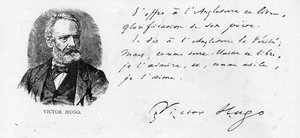 VICTOR HUGO.
J'offre à l'Angleterre ce livre,
glorification de son poëte.
Je dis à l'Angleterre la vérité;
mais, comme terre illustre et libre,
je l'admire, et, comme asile,
je l'aime.
Victor Hugo